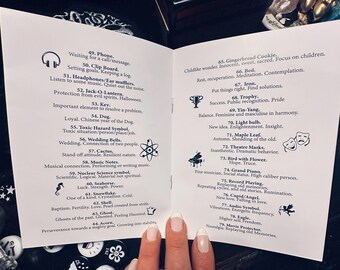 49. Phone.
Waiting for a call/message.
50. Clip Board.
Setting goals. Keeping a log.
51. Headphones/Ear muffs.
Listen to some music. Quiet out the noise.
52. Jack-O-Lantern.
Protection from evil spirits. Halloween.
53. Key.
Important element to resolve a puzzle.
54. Dog.
Loyal. Chinese year of the Dog.
55. Toxic Hazard Symbol.
Toxic situation/person/place/job.
56. Wedding Bells.
Wedding. Connection of two people.
57. Cactus.
Stand off attitude. Resilient nature.
58. Music Notes.
Musical connection. Performing or
59. Nuclear Science symbol.
Scientific. Logical. Material not spiritual.
60. Seahorse.
Luck. Strength. Power.
61. Snowflake.
One of a Kind. Crystalline. Cold.
62. Shell.
Baptism. Fertility. Love. Pearl created from
63. Ghost.
Ghosts of the past. Ghosted. Feeling Haunted
64. Acorn.
Perseverance towards a mighty goal. Growing into
65. Gingerbread Cookie.
Childlike wonder. Innocent, sweet, sacred. Focus on children.
66. Bed.
Rest, recuperation. Meditation. Contemplation.
67. Iron.
Put things right. Find solutions.
68. Trophy.
Success. Public recognition. Pride
69. Yin-Yang.
Balance. Feminine and masculine in harmony.
70. Light bulb.
New idea. Enlightenment. Insight.
71. Maple Leaf.
Autumn. Shedding of the old.
72. Theatre Masks.
Theatrical. Dramatic behavior.
73. Bird with Flower.
Hope. Truce.
74. Grand Piano.
Fine musician, Social status. High caliber person.
75. Record Playing.
Repeating cycles, and old stories. Rumination.
76. Cupid/Angel.
New love. Falling in love.
77. Audio Symbol.
Vibrations. Energetic frequency.
78. Eagle.
Higher self. Freedom.
79. Movie Projector.
Nostalgia. Replaying Old Memories.